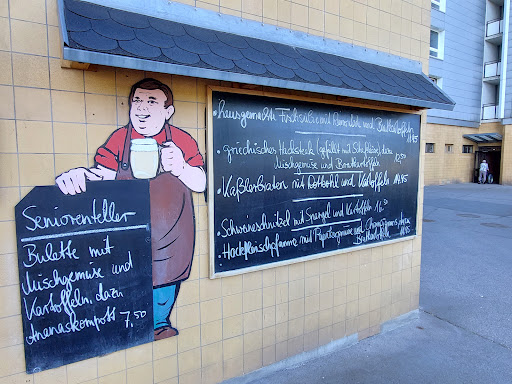 Seniorenteller
Bulette mit
Mischgemüse und
Kartoffeln, dazu
Ananaskompott 7,50
• Hausgemachte Fischsülze mit Remoulade und Bratkartoffeln
• Griechisches Hacksteak (gefüllt mit Schafskäse), dazu
Mischgemüse und Bratkartoffeln 12,50
• Kaßlerbraten mit Rotkohl und Kartoffeln
• Schweineschnitzel mit Spargel und Kartoffeln
• Hackfleischpfanne mit Paprikagemüse und
Bratkartoffeln